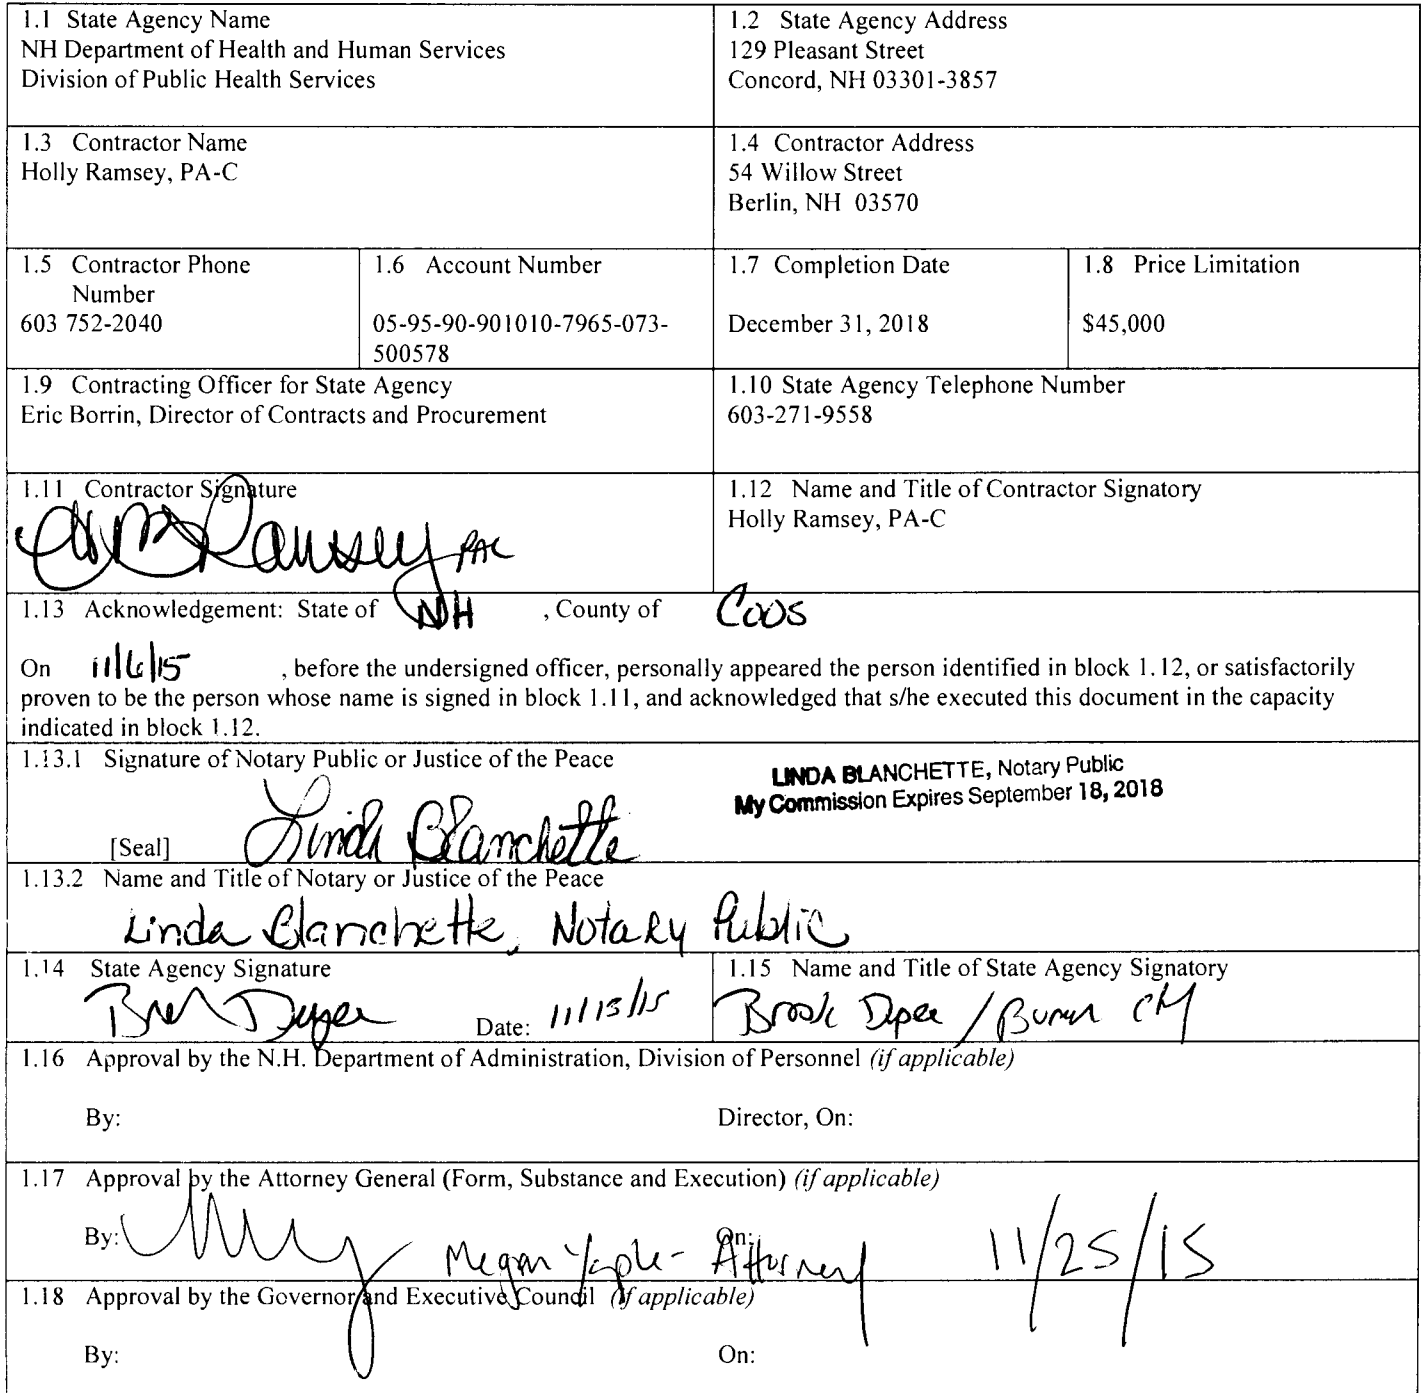 1.1 State Agency Name
NH Department of Health and Human Services
Division of Public Health Services
1.2 State Agency Address
129 Pleasant Street
Concord, NH 03301-3857
1.3 Contractor Name
Holly Ramsey, PA-C
1.4 Contractor Address
54 Willow Street
Berlin, NH 03570
1.5 Contractor Phone
Number
603 752-2040
1.6 Account Number
05-95-90-901010-7965-073-
500578
1.7 Completion Date
December 31, 2018
1.8 Price Limitation
$45,000
1.9 Contracting Officer for State Agency
Eric Borrin, Director of Contracts and Procurement
1.10 State Agency Telephone Number
603-271-9558
1.11 Contractor Signature
Ramsey PAC
1.12 Name and Title of Contractor Signatory
Holly Ramsey, PA-C
1.13 Acknowledgement: State of NH , County of Coos
On 11/6/15 , before the undersigned officer, personally appeared the person identified in block 1.12, or satisfactorily
proven to be the person whose name is signed in block 1.11, and acknowledged that s/he executed this document in the capacity
indicated in block 1.12.
1.13.1 Signature of Notary Public or Justice of the Peace
LINDA BLANCHETTE, Notary Public
My Commission Expires September 18, 2018
[Seal] Linda Blanchette
1.13.2 Name and Title of Notary or Justice of the Peace
Linda Blanchette, Notary Public
1.14 State Agency Signature
Date: 11/13/15
1.15 Name and Title of State Agency Signatory
Brook
1.16 Approval by the N.H. Department of Administration, Division of Personnel (if applicable)
By: Director, On:
1.17 Approval by the Attorney General (Form, Substance and Execution) (if applicable)
By: Megan Yaple - Attorney On: 11/25/15
1.18 Approval by the Governor and Executive Council (if applicable)
By: On: